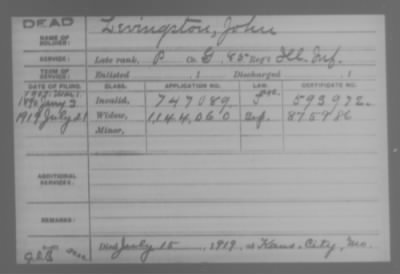 DEAD
NAME OF SOLDIER: Levingston, John
SERVICE: Late rank, P Co. G, 85 Reg't Ill. Inf.
TERM OF SERVICE: Enlisted , 1 Discharged , 1
DATE OF FILING. CLASS. APPLICATION NO. LAW. CERTIFICATE NO.
1890 Jany 3 Invalid, 747089 593972
1919 July 21 Widow, 1144060 875986
Minor,
ADDITIONAL SERVICES:
REMARKS:
Died July 15, 1919, at Kans. City, Mo.